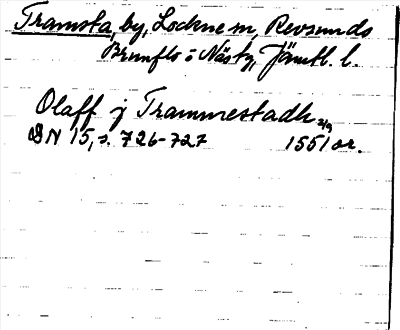 Tramsta, by, Lockne sn, Revsunds
Brunflo o Näs tg, Jämtl. l.
Olaff j Trammestadh 2/9
DN 15, s. 726-727 1551 or.